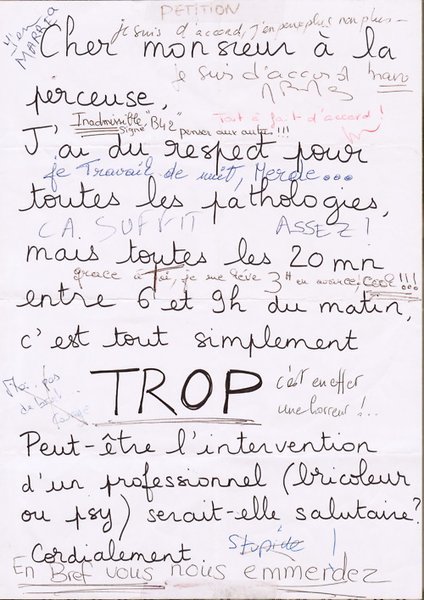 PETITION
je suis d'accord, j'en peux plus non plus -
j'en
MARRE
Cher monsieur à la
je suis d'accord
perceuse,
Inadmissible
signé "B42" penser aux autres !!!
Tout à fait d'accord !
J'ai du respect pour
je Travail de nuit, Merde...
toutes les pathologies,
CA SUFFIT ASSEZ !
mais toutes les 20 mn
grace à toi, je me lève 3H en avance, cool !!!
entre 6 et 9h du matin,
c'est tout simplement
TROP
c'est en effet
une horreur !..
Moi, pas
de
Peut-être l'intervention
d'un professionnel (bricoleur
ou psy) serait-elle salutaire?
Cordialement
Stupide !
En Bref vous nous emmerdez